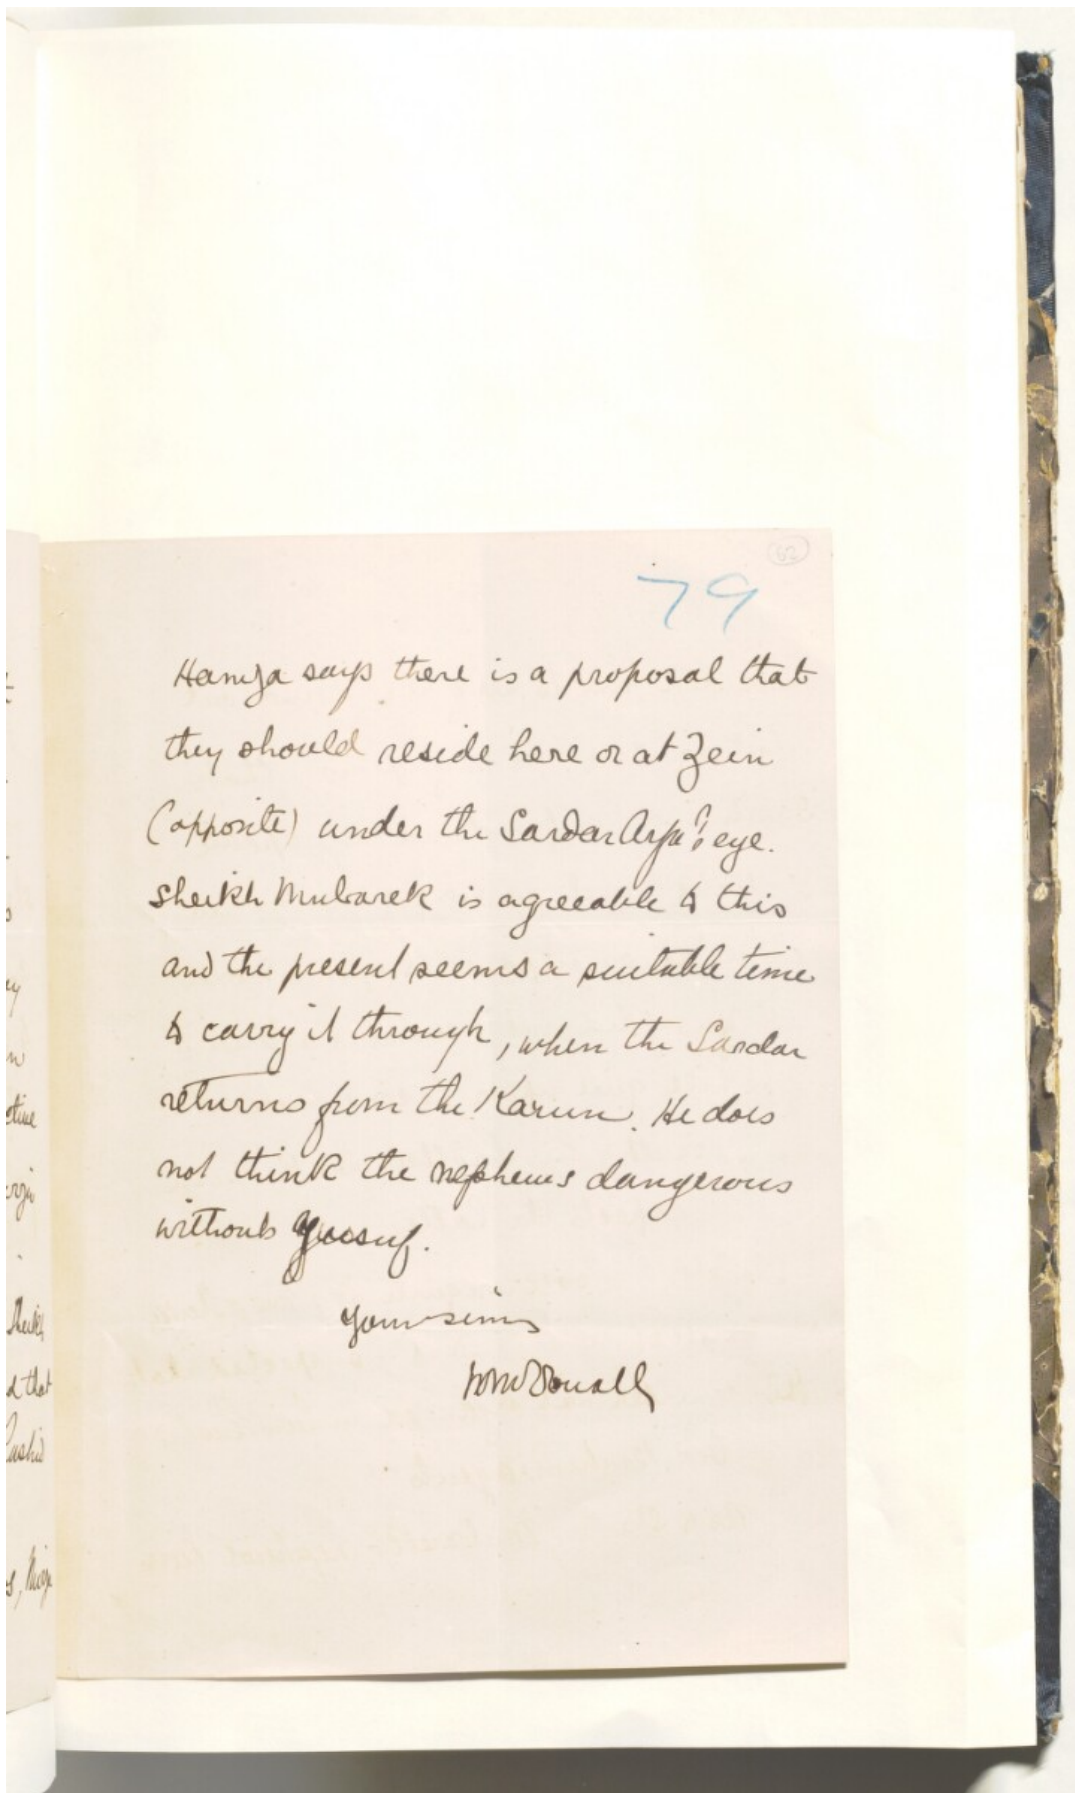 62
79
Hamza says there is a proposal that
they should reside here or at Zein
(opposite) under the Sardar Arfa's eye.
Sheikh Mubarek is agreeable to this
and the present seems a suitable time
to carry it through, when the Sardar
returns from the Karun. He does
not think the nephews dangerous
without Yusuf.
Yours sin
WMcDouall